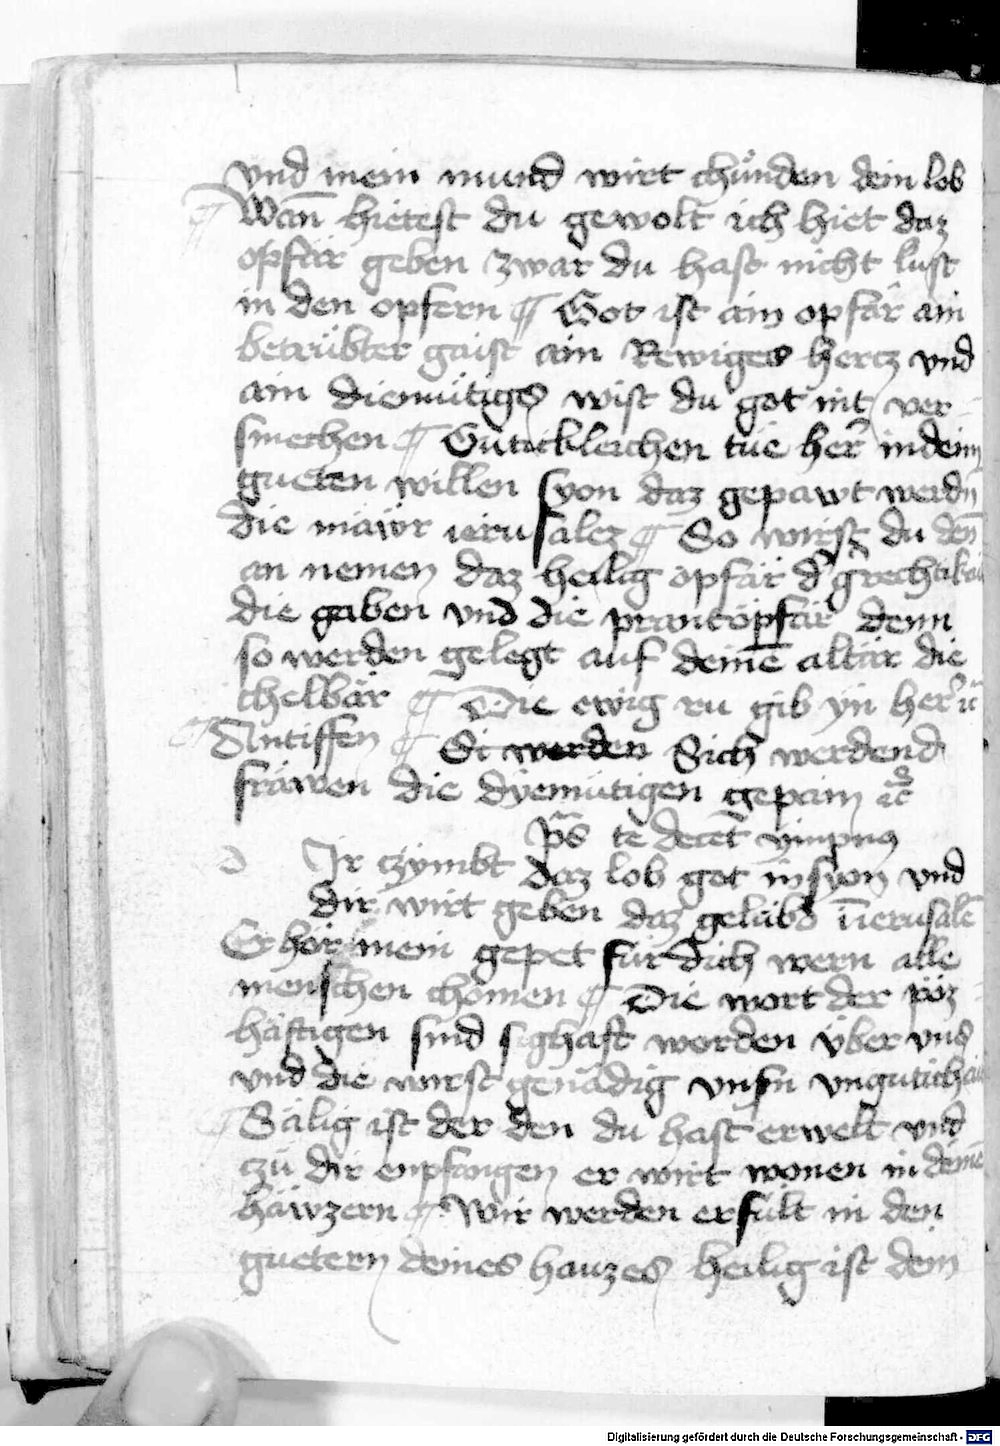 vnd mein mund wirt chúnden dein lob
¶ Wan̄ hietest du gewolt ich hiet daz
opfär geben zwar du hast nicht lust
in den opfern ¶ Got ist ain opfär ain
betrübter gaist ain Rewiges hertz vnd
ain diemütiges wist du got nit ver=
smechen ¶ Gütickleichen tüe her̄ in dein̄
gueten willen syon daz gepawt werdn̄
die mäwr ierusalez ¶ So wirst du den̄
an nemen daz heilig opfär d' grechtikai
die gaben vnd die prantöpfär denn
so werden gelegt auf deinē altär die
chelbär ¶ Die ewig ru gib yn her̄ zc̄
¶ Antiffen ¶ Si werden Sich werdend
fräwen die dyemütigen gepain zc̄
ps̄ te decet ympnus
D Ir czymbt daz lob got in syon vnd
dir wirt geben daz gelübd in ierusalē
Erhör mein gepet für dich wern alle
menschen chömen ¶ Die wort der pöz=
häftigen sind sighaft worden über vns
vnd die wirst genädig vnsn̄ vngutichai
¶ Sälig ist der den du hast erwelt vnd
czü dir enpfangen er wirt wonen in deinē
häwzern ¶ Wir werden erfült in den
guetern deines hauzes heilig ist dein
Digitalisierung gefördert durch die Deutsche Forschungsgemeinschaft - DFG